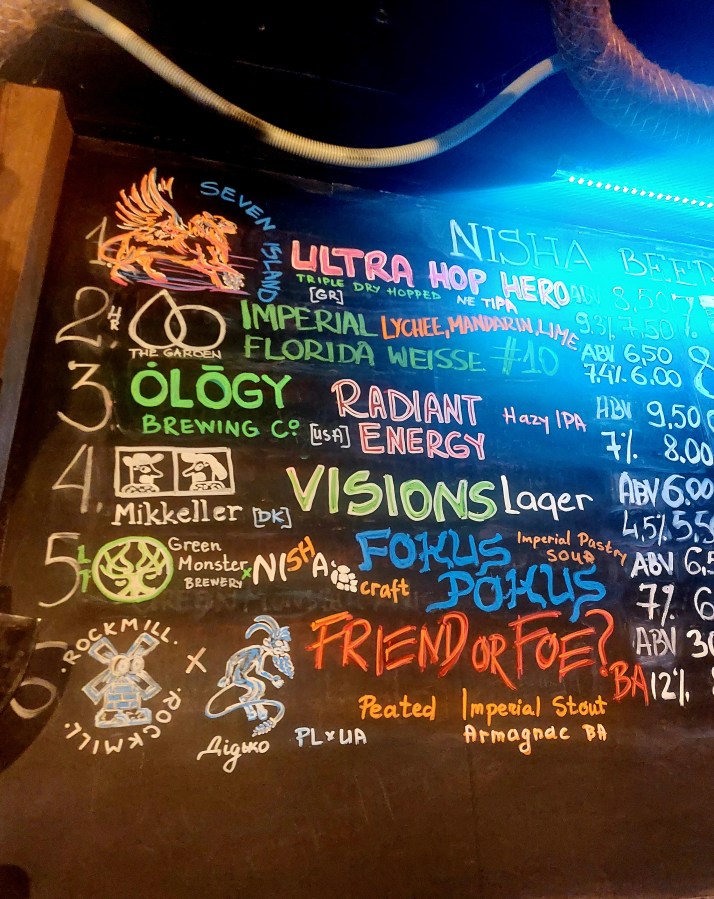 NISHA BEER
1. SEVEN ISLAND ULTRA HOP HERO ABV 8,50
TRIPLE DRY HOPPED NE TIPA
[GR] 9.3% 7,50
2. HR THE GARDEN IMPERIAL LYCHEE, MANDARIN, LIME ABV 6,50
FLORIDA WEISSE #10 7.4% 6.00
3. ÓLŌGY RADIANT Hazy IPA ABV 9,50
BREWING Cº [USA] ENERGY 7% 8.00
4. VISIONS Lager ABV 6.00
Mikkeller [DK] 4,5%
5 LT Green Monster BREWERY x NISHA craft FOKUS Imperial Pastry SOUR ABV
POKUS 7%
6 ROCKMILL ROCKMILL x Дідько FRIEND OR FOE? BA ABV
12%
Peated Imperial Stout
PL x UA Armagnac BA